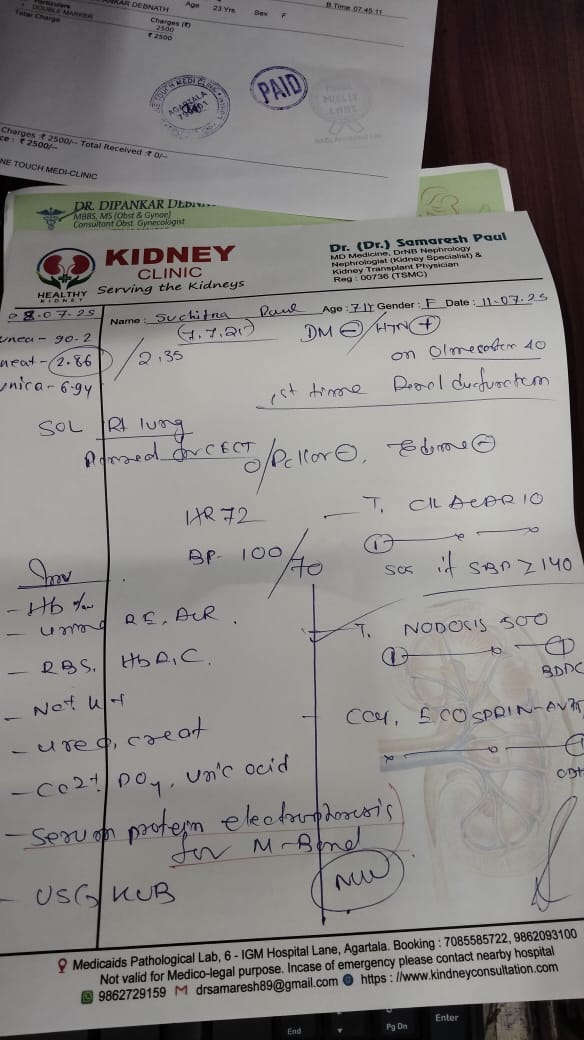 Particulars
1 DOUBLE MARKER
Total Charge
ANKAR DEBNATH
Age 23 Yrs Sex F
B.Time 07:45:11
Charges (₹)
2500
₹ 2500
AGARTALA
PAID
Charges :₹ 2500/-- Total Received :₹ 0/--
ce : ₹ 2500/--
NE TOUCH MEDI-CLINIC
DR. DIPANKAR DEBNA
MBBS, MS (Obst & Gynae)
Consultant Obst. Gynecologist
HEALTHY
KIDNEY
KIDNEY
CLINIC
Serving the Kidneys
Dr. (Dr.) Samaresh Paul
MD Medicine, DrNB Nephrology
Nephrologist (Kidney Specialist) &
Kidney Transplant Physician
Reg : 00736 (TSMC)
08.07.25
Name : Suchitra Paul Age : 71Y Gender : F Date : 11.07.25
urea - 90.2
(7.7.25)
DM ⊖/HTN ⊕
creat - 2.86 / 2.35
on Olmesartan 40
uric a - 6.94
1st time Renal dysfunction
SOL Rt lung
Planned for CECT
O/Pallor ⊖, Edema ⊖
HR 72
BP - 100/70
- T. CILACAR 10
①
SOS if SBP ≥ 140
Inv
- Hb %
- urine RE, ACR.
- RBS, HbA1C.
- Na+ K+
- urea, creat
- Ca2+ PO4, uric acid
- Serum protein electrophoresis
for M-Band
- USG KUB
- T. NODOSIS 500
① ①
BDPC
Cap. ECOSPRIN-AV
Medicaids Pathological Lab, 6 - IGM Hospital Lane, Agartala. Booking : 7085585722, 9862093100
Not valid for Medico-legal purpose. Incase of emergency please contact nearby hospital
9862729159 drsamaresh89@gmail.com https : //www.kindneyconsultation.com
End
Pg Dn
Enter